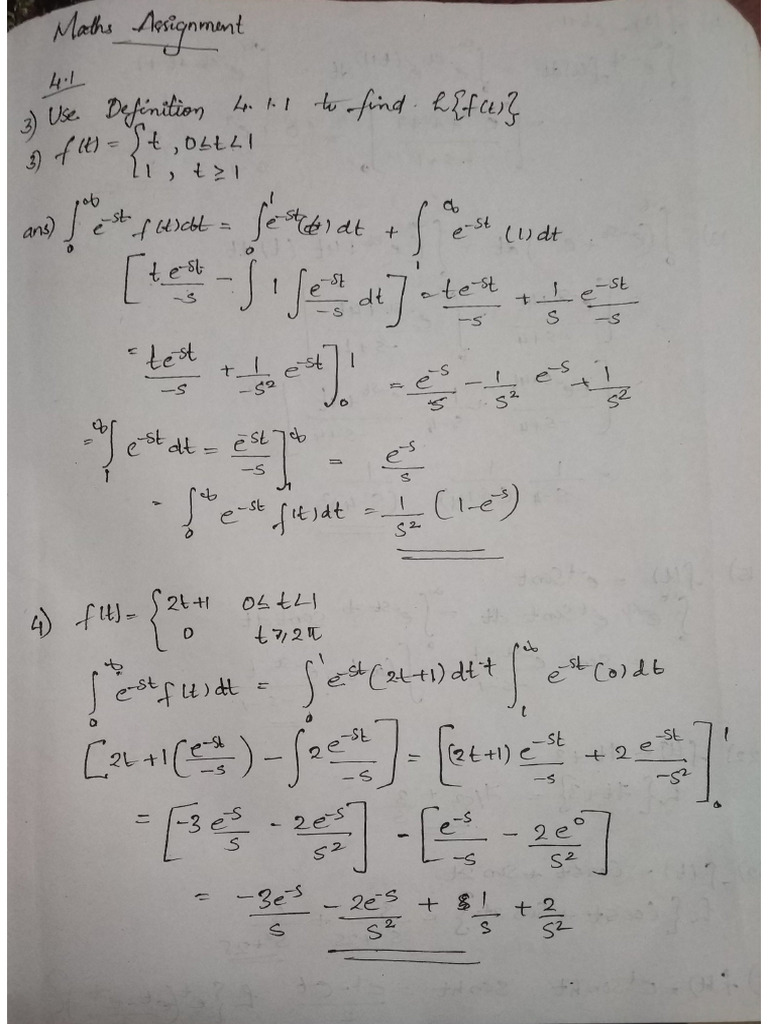 Maths Assignment
4.1
3) Use Definition 4.1.1 to find L{f(t)}
3) f(t) = { t , 0≤t<1
1 , t ≥ 1
ans) ∫₀^∞ e^-st f(t)dt = ∫₀^1 e^-st (t) dt + ∫₁^∞ e^-st (1) dt
[ t e^-st/-s - ∫ 1 ∫ e^-st/-s dt ] = te^-st/-s + 1/s e^-st/-s
= te^-st/-s + 1/-s² e^-st ]₀^1 = e^-s/s - 1/s² e^-s + 1/s²
= ∫₁^∞ e^-st dt = e^-st/-s ]₁^∞ = e^-s/s
= ∫₀^∞ e^-st f(t)dt = 1/s² (1-e^-s)
4) f(t) = { 2t+1 0≤t<1
0 t≥2π
∫₀^∞ e^-st f(t)dt = ∫₀^1 e^-st (2t+1)dt + ∫₁^∞ e^-st (0)dt
[ 2t+1 (e^-st/-s) - ∫ 2 e^-st/-s ] = [ (2t+1) e^-st/-s + 2 e^-st/-s² ]₀^1
= [ -3 e^-s/s - 2e^-s/s² ] - [ e^-s/-s - 2e^0/s² ]
= -3e^-s/s - 2e^-s/s² + 1/s + 2/s²